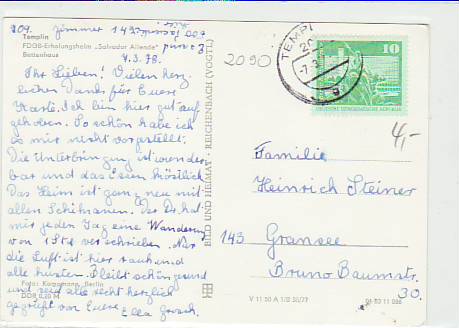 Templin
FDGB-Erholungsheim „Salvador Allende"
Bettenhaus
7.3.78.
Ihr Lieben! Vielen herz-
lichen Dank für Euere
Karte. Ich bin hier gut auf-
gehoben. So schön habe ich
es mir nicht vorgestellt.
Die Unterbringung ist wunder
bar und das Essen köstlich
Das Heim ist ganz neu mit
allen Schikanen. Der Dr. hat
mir jeden Tag eine Wanderung
von 1 Std verschrieben. Nur
die Luft ist hier rauh und
alle husten. Bleibt schön gesund
und seid alle recht herzlich
gegrüßt von Euere Ella
Foto: Kargmann, Berlin
DDR 0,20 M
BILD UND HEIMAT · REICHENBACH (VOGTL)
2090
TEMPLIN
10
DEUTSCHE DEMOKRATISCHE REPUBLIK
4,-
Familie
Heinrich Steiner
143 Gransee
Bruno Baumstr.
30.
V 11 50 A 1/B 30/77